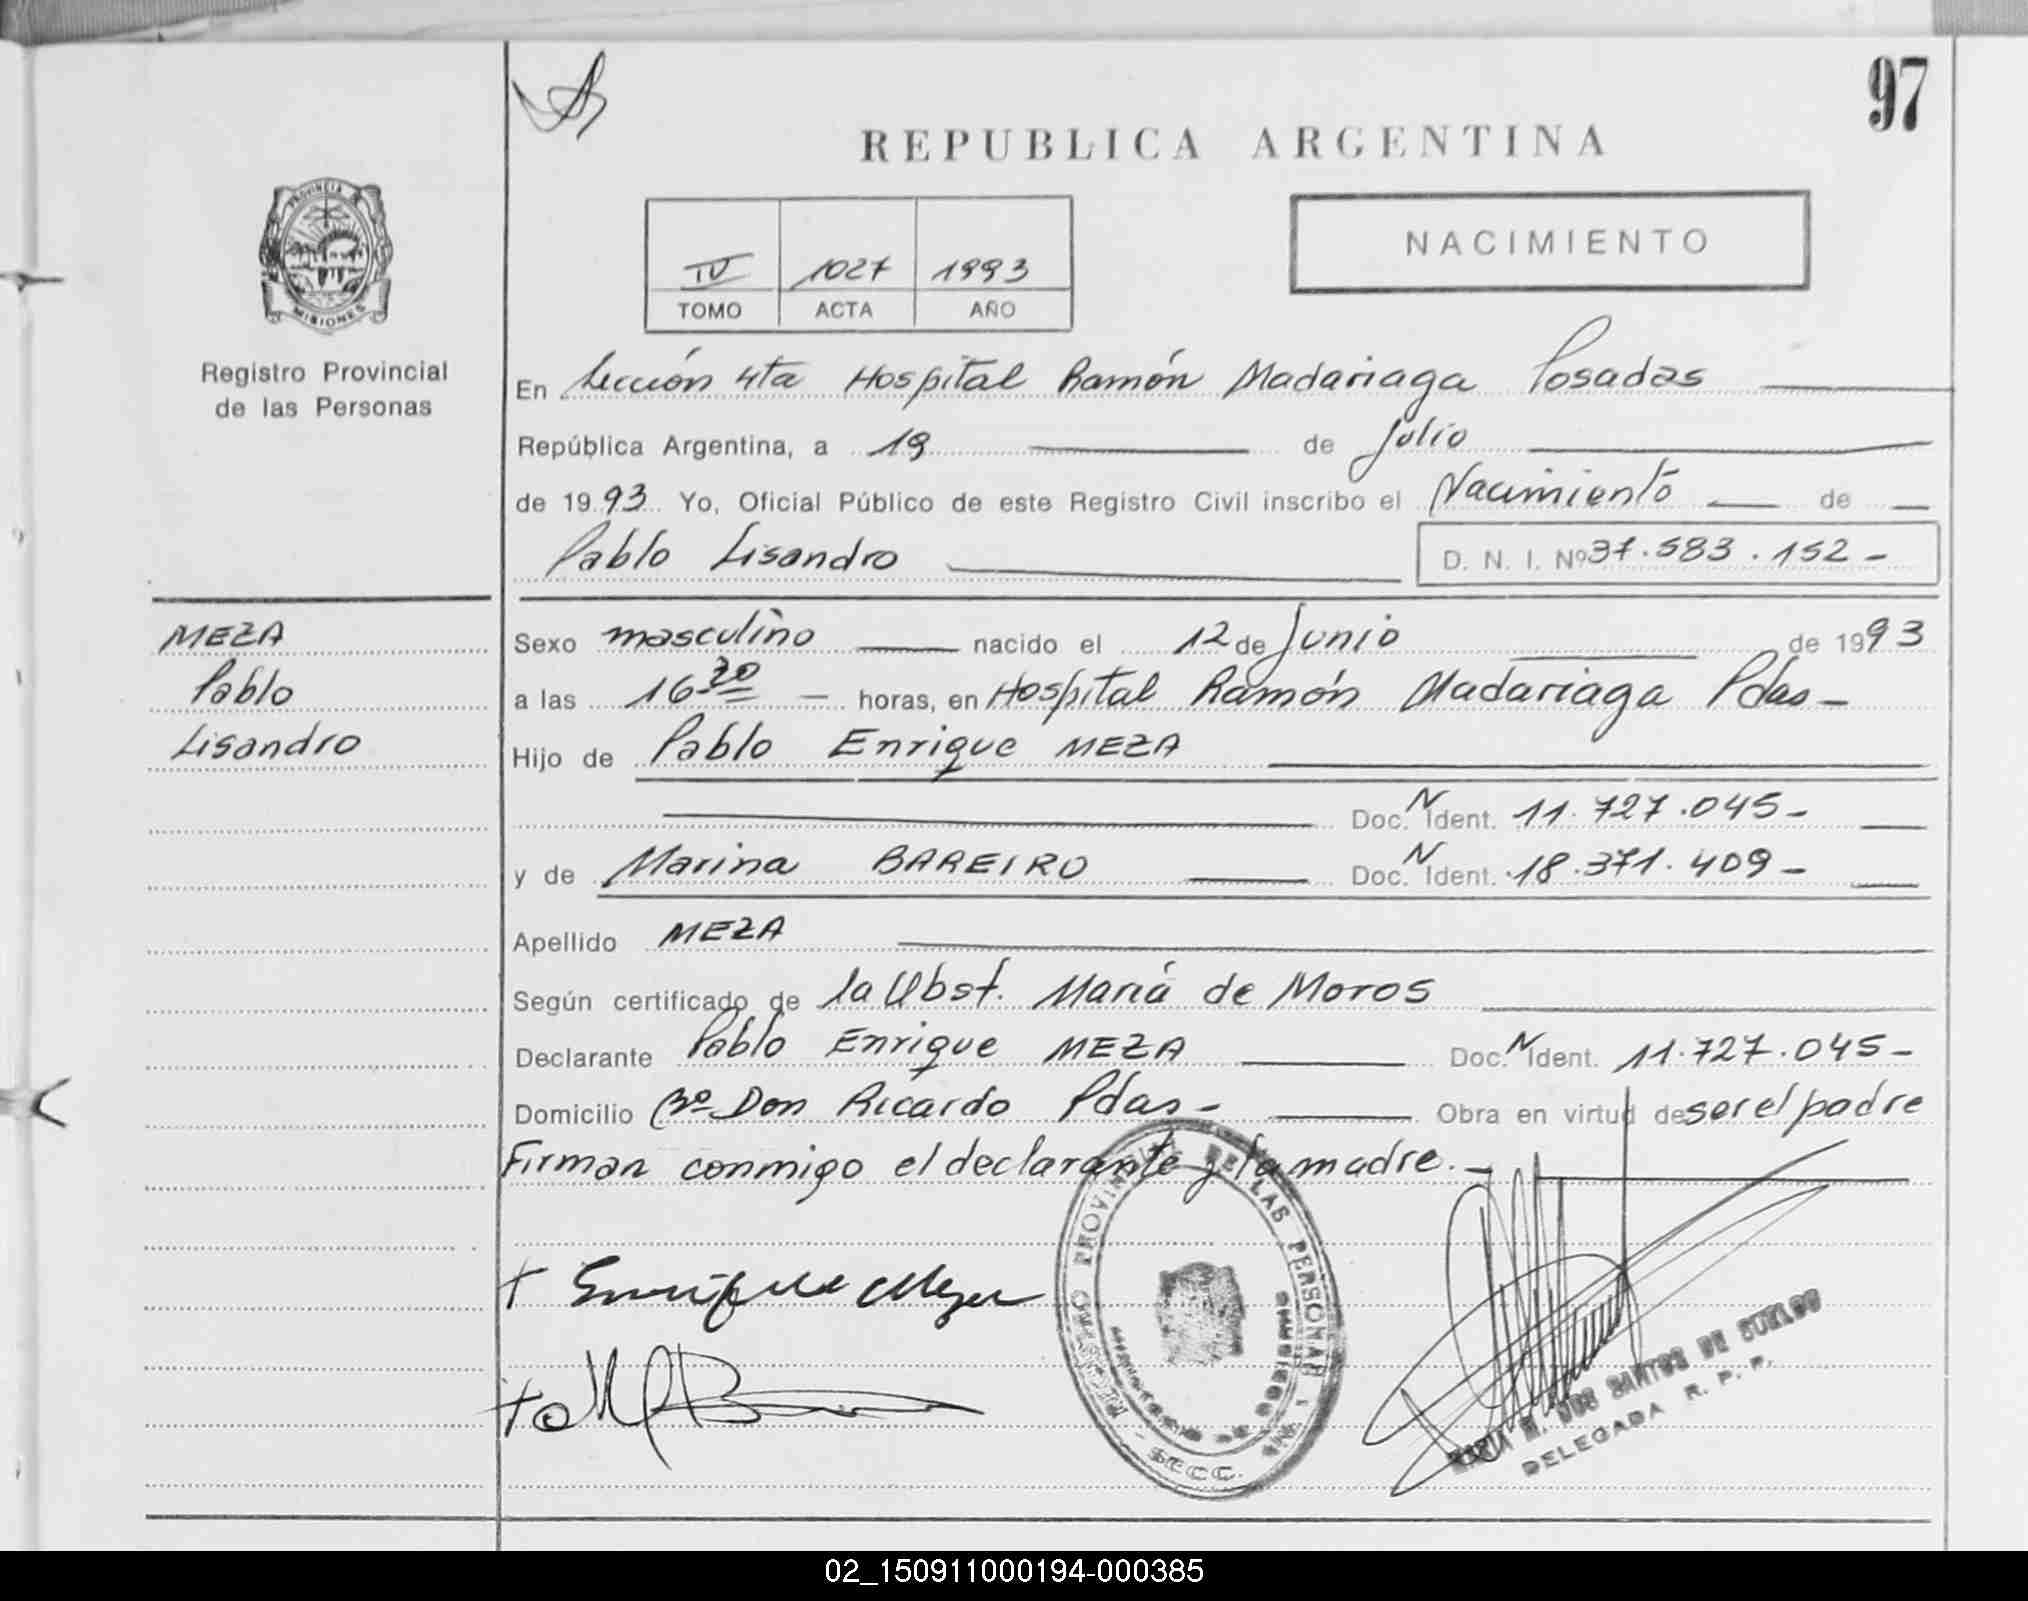 97
REPUBLICA ARGENTINA
NACIMIENTO
PROVINCIA
MISIONES
IV 1027 1993
TOMO ACTA AÑO
Registro Provincial
de las Personas
En Sección 4ta Hospital Ramón Madariaga Posadas
República Argentina, a 19 de Julio
de 1993 Yo, Oficial Público de este Registro Civil inscribo el Nacimiento de
Pablo Lisandro D. N. I. Nº 37.583.152-
MEZA
Pablo
Lisandro
Sexo masculino nacido el 12 de Junio de 1993
a las 16 30 horas, en Hospital Ramón Madariaga Pdas-
Hijo de Pablo Enrique MEZA
Doc. N Ident. 11.727.045-
y de Marina BAREIRO Doc. N Ident. 18.371.409-
Apellido MEZA
Según certificado de la Obst. María de Moros
Declarante Pablo Enrique MEZA Doc. N Ident. 11.727.045-
Domicilio Bº Don Ricardo Pdas- Obra en virtud de ser el padre
Firman conmigo el declarante y la madre.-
REGISTRO PROVINCIAL DE LAS PERSONAS
SECC.
MARIA N. DOS SANTOS DE SUELDO
DELEGADA R. P. P.
02_150911000194-000385